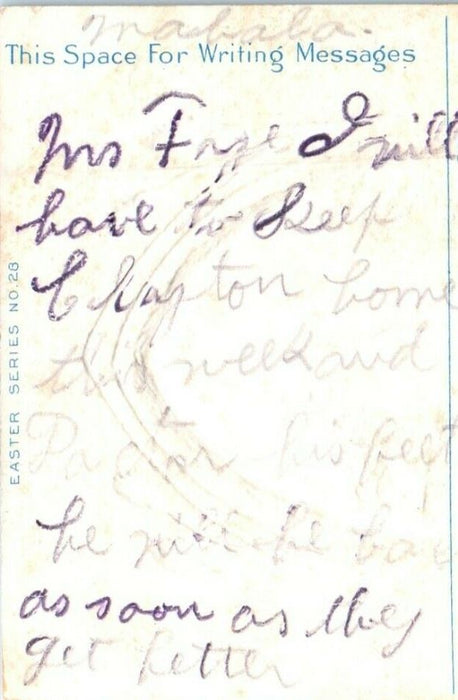 This Space For Writing Messages
Mrs Frye I will
have to Keep
Clayton home
this week and
his feet
he will be bac
as soon as they
get better
EASTER SERIES NO. 28